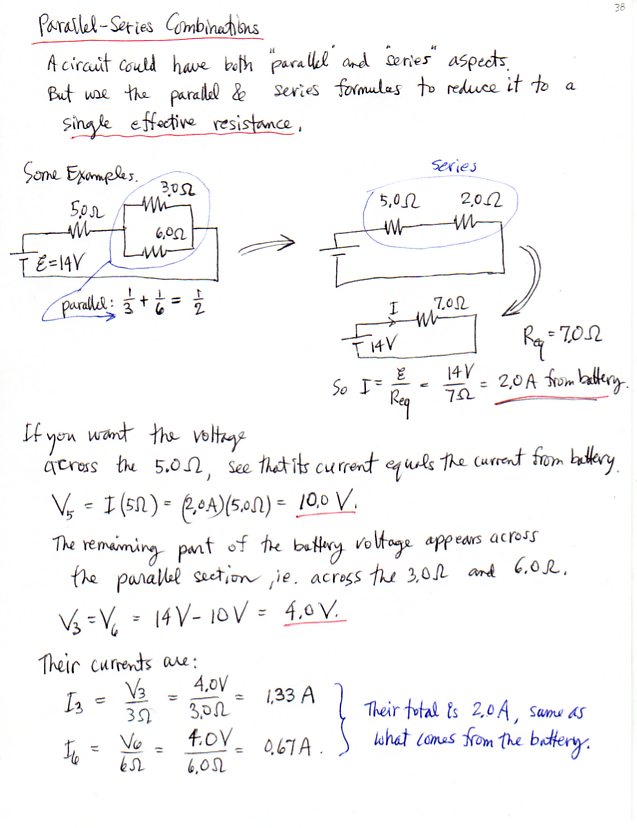 38
Parallel-Series Combinations
A circuit could have both "parallel" and "series" aspects.
But use the parallel & series formulas to reduce it to a
single effective resistance.
Some Examples.
series
3.0Ω
5.0Ω
6.0Ω
ℰ=14V
5.0Ω 2.0Ω
parallel: 1/3 + 1/6 = 1/2
I 7.0Ω
14V
Req = 7.0Ω
So I = ℰ/Req = 14V/7Ω = 2.0A from battery.
If you want the voltage
across the 5.0Ω, see that its current equals the current from battery.
V5 = I(5Ω) = (2.0A)(5.0Ω) = 10.0 V.
The remaining part of the battery voltage appears across
the parallel section, ie. across the 3.0Ω and 6.0Ω.
V3 = V6 = 14V - 10V = 4.0V.
Their currents are:
I3 = V3/3Ω = 4.0V/3.0Ω = 1.33 A
I6 = V6/6Ω = 4.0V/6.0Ω = 0.67A.
Their total is 2.0A, same as
what comes from the battery.